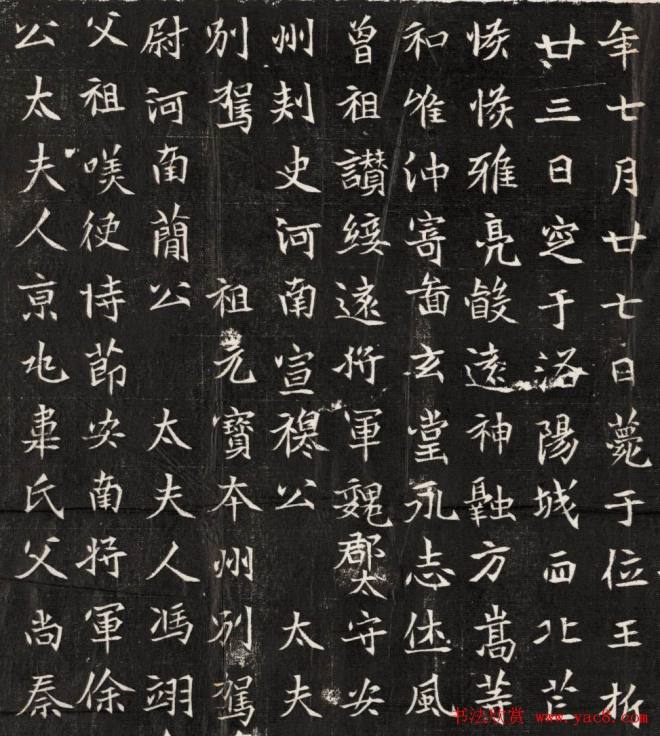 年七月廿七日薨于位王折
廿三日窆于洛陽城西北芒
雅亮遠神融方嵩
和唯沖寄啚玄堂永志休風
曾祖讃綏遠將軍魏郡太守安
州刾史河南宣穆公 太夫
別駕 祖元寶本州別駕
尉河南簡公 太夫人馮翊
父祖使持節安南將軍徐
公太夫人京兆韋氏父尚秦
书法欣赏 www.yac8.com